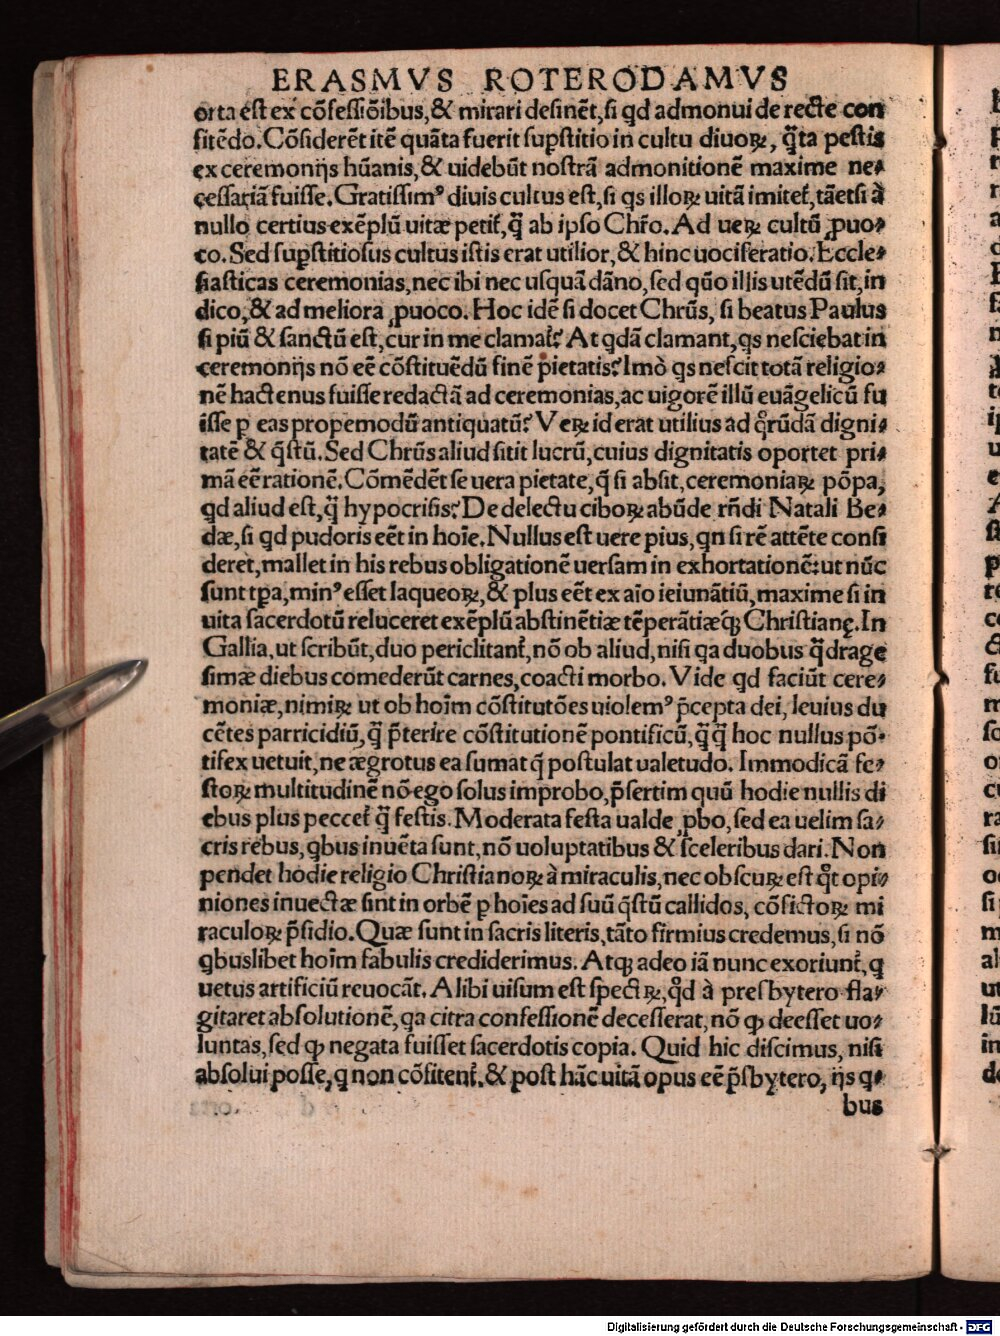 ERASMVS ROTERODAMVS
orta est ex cõfessiõibus,& mirari desinẽt,si qd admonui de recte con
fitẽdo.Cõsiderẽt itẽ quãta fuerit supstitio in cultu diuoꝝ, q̃ta pestis
ex ceremonijs hũanis,& uidebũt nostrã admonitionẽ maxime ne⸗
cessariã fuisse.Gratissimꝰ diuis cultus est,si qs illoꝝ uitã imitet᷑,tãetsi à
nullo certius exẽplũ uitæ petit᷑,q̃ ab ipso Chr̃o.Ad ueꝝ cultũ ꝓuo⸗
co.Sed supstitiosus cultus istis erat utilior,& hinc uociferatio.Eccle⸗
siasticas ceremonias,nec ibi nec usquã dãno,sed quõ illis utẽdũ sit,in
dico,& ad meliora ꝓuoco.Hoc idẽ si docet Chrũs, si beatus Paulus
si piũ & sanctũ est,cur in me clamat᷑?At qdã clamant,qs nesciebat in
ceremonijs nõ eẽ cõstituẽdũ finẽ pietatis?Imò qs nescit totã religio⸗
nẽ hactenus fuisse redactã ad ceremonias,ac uigorẽ illũ euãgelicũ fu
isse p eas propemodũ antiquatũ?Veꝝ id erat utilius ad qͦrũdã digni⸗
tatẽ & q̃stũ.Sed Chrũs aliud sitit lucrũ,cuius dignitatis oportet pri⸗
mã eẽ rationẽ.Cõmẽdẽt se uera pietate,q̃ si absit,ceremoniaꝝ põpa,
qd aliud est,q̃ hypocrisis?De delectu ciboꝝ abũde rñdi Natali Be⸗
dæ,si qd pudoris eẽt in hoĩe.Nullus est uere pius,qn si rẽ attẽte consi
deret,mallet in his rebus obligationẽ uersam in exhortationẽ:ut nũc
sunt tpa,minꝰ esset laqueoꝝ,& plus eẽt ex aĩo ieiunãtiũ,maxime si in
uita sacerdotũ reluceret exẽplũ abstinẽtiæ tẽperãtiæq̃ꝫ Christianę.In
Gallia,ut scribũt,duo periclitant᷑,nõ ob aliud,nisi qa duobus q̃drage
simæ diebus comederũt carnes,coacti morbo.Vide qd faciũt cere⸗
moniæ,nimiꝝ ut ob hoĩm cõstitutões uiolemꝰ p̃cepta dei, leuius du
cẽtes parricidiũ,q̃ p̃terire cõstitutionẽ pontificũ,q̃q̃ hoc nullus põ⸗
tifex uetuit,ne ægrotus ea sumat q̃ postulat ualetudo. Immodicã fe⸗
stoꝝ multitudinẽ nõ ego solus improbo,p̃sertim quũ hodie nullis di
ebus plus peccet᷑ q̃ festis.Moderata festa ualde ꝓbo,sed ea uelim sa⸗
cris rebus,qbus inuẽta sunt,nõ uoluptatibus & sceleribus dari.Non
pendet hodie religio Christianoꝝ à miraculis,nec obscuꝝ est qͦt opi⸗
niones inuectæ sint in orbẽ p hoĩes ad suũ q̃stũ callidos, cõfictoꝝ mi
raculoꝝ p̃sidio.Quæ sunt in sacris literis,tãto firmius credemus,si nõ
qbuslibet hoĩm fabulis crediderimus. Atqꝫ adeo iã nunc exoriunt᷑,q
uetus artificiũ reuocãt. Alibi uisum est spectꝝ,qͦd à presbytero fla⸗
gitaret absolutionẽ,qa citra confessionẽ decesserat,nõ ꝙ deesset uo⸗
luntas,sed ꝙ negata fuisset sacerdotis copia. Quid hic discimus, nisi
absolui posse,q non cõfitent᷑.& post hãc uitã opus eẽ p̃sbytero, ijs q⸗
bus
Digitalisierung gefördert durch die Deutsche Forschungsgemeinschaft - DFG